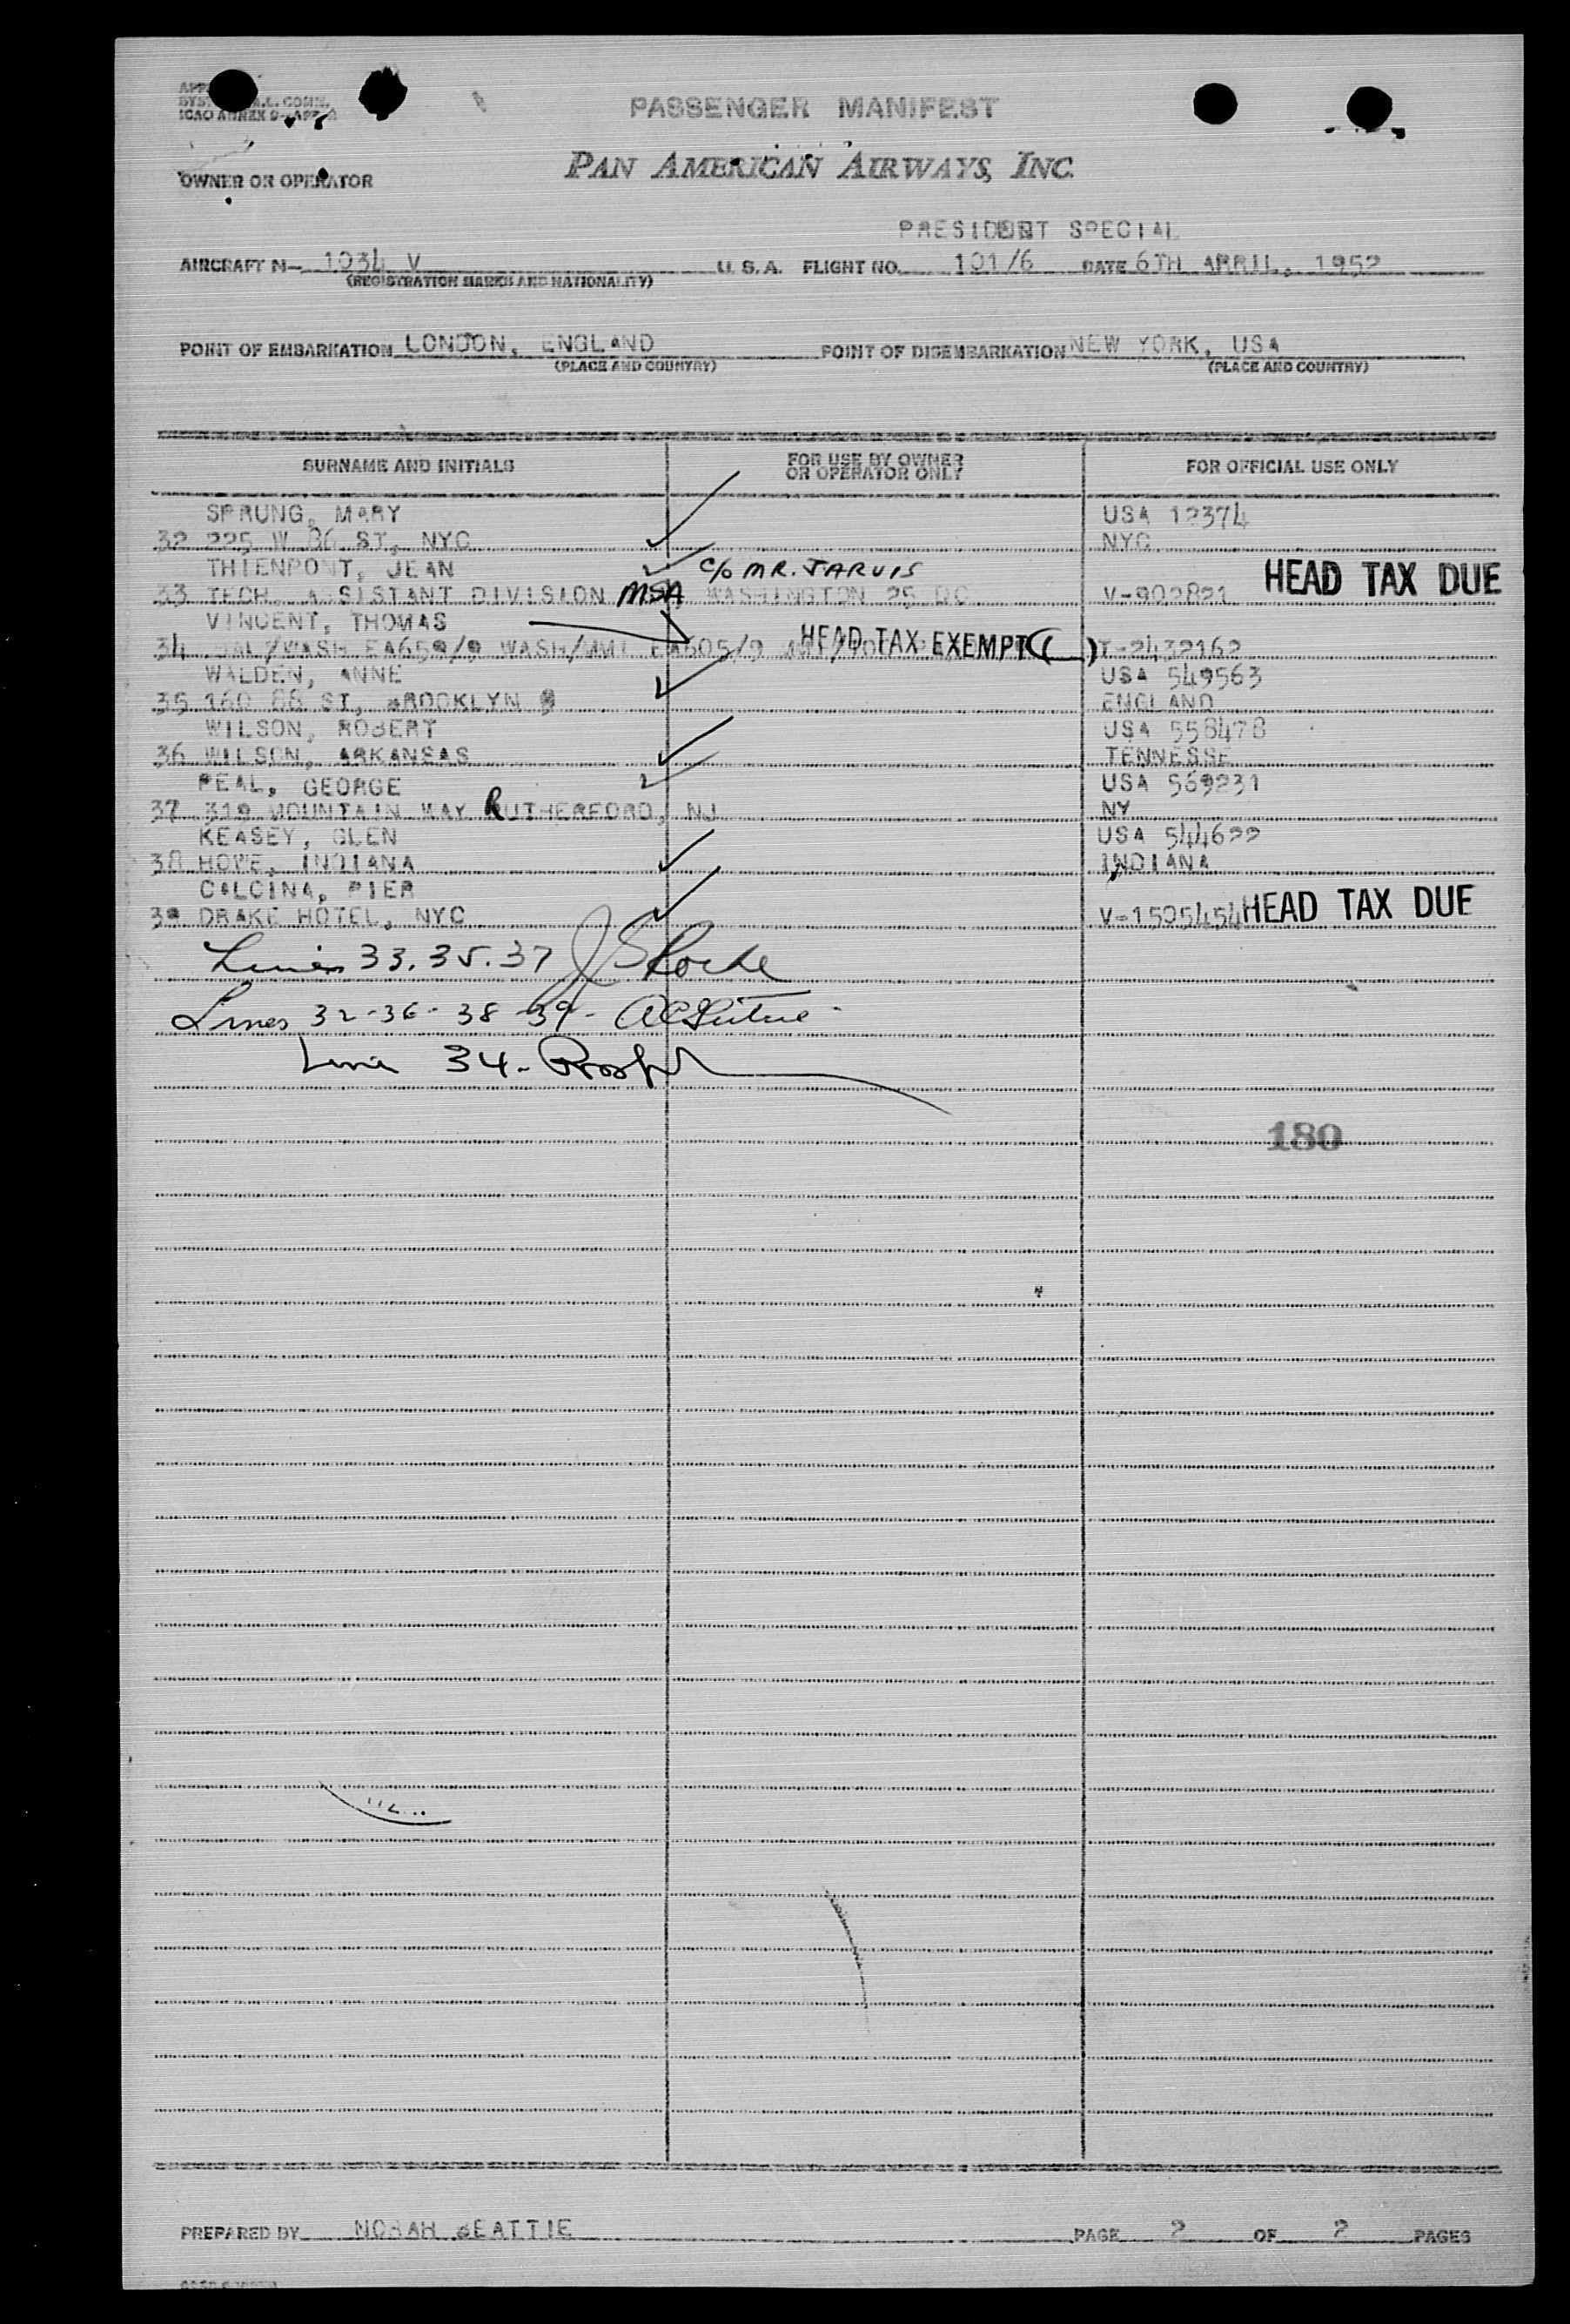 PASSENGER MANIFEST
ICAO ANNEX 9
PAN AMERICAN AIRWAYS, INC.
OWNER OR OPERATOR
PRESIDENT SPECIAL
AIRCRAFT N- 1034 V U. S. A. FLIGHT NO. 101/6 DATE 6TH APRIL, 1952
(REGISTRATION MARKS AND NATIONALITY)
POINT OF EMBARKATION LONDON, ENGLAND POINT OF DISEMBARKATION NEW YORK, USA
(PLACE AND COUNTRY) (PLACE AND COUNTRY)
SURNAME AND INITIALS FOR USE BY OWNER OR OPERATOR ONLY FOR OFFICIAL USE ONLY
SPRUNG, MARY USA 12374
32 225 W 86 ST, NYC NYC
THIENPONT, JEAN C/O MR. JARVIS HEAD TAX DUE
33 TECH. ASSISTANT DIVISION MSA WASHINGTON 25 DC V-902821
VINCENT, THOMAS
34 /WASH EA659/9 WASH/MMI EA605/9 HEAD TAX EXEMPT ( ) T-2432162
WALDEN, ANNE USA 549563
35 160 88 ST, BROOKLYN 9 ENGLAND
WILSON, ROBERT USA 558478
36 WILSON, ARKANSAS TENNESSE
PEAL, GEORGE USA 569231
37 319 MOUNTAIN WAY RUTHERFORD, NJ NY
KEASEY, GLEN USA 544622
38 HOWE, INDIANA INDIANA
CALCINA, PIER
39 DRAKE HOTEL, NYC V-1505454 HEAD TAX DUE
Lines 33. 35. 37 J S Roche
Lines 32-36-38-39-
Line 34-
180
PREPARED BY NORAH BEATTIE PAGE 2 OF 2 PAGES